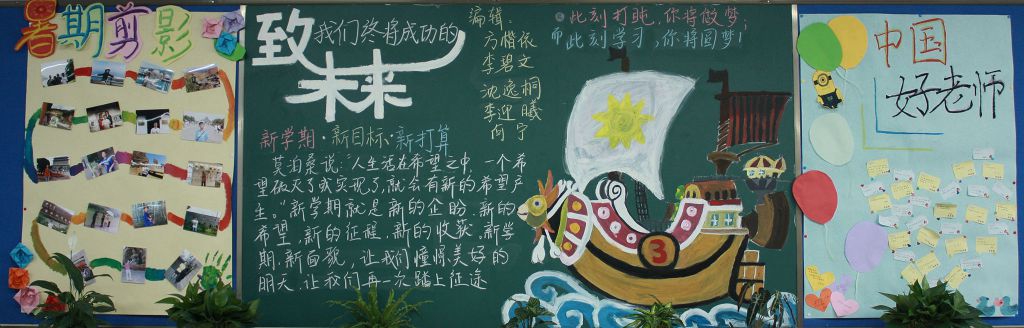 暑期剪影
致我们终将成功的
未来
编辑:
方楷依
李碧文
沈逸桐
李迎曦
向宁
此刻打盹,你将做梦;
而此刻学习,你将圆梦!
新学期·新目标·新打算
莫泊桑说:"人生活在希望之中,一个希
望破灭了或实现了,就会有新的希望产
生。"新学期就是新的企盼,新的
希望,新的征程,新的收获,新学
期,新面貌,让我们憧憬美好的
明天,让我们再一次踏上征途
3
中国
好老师